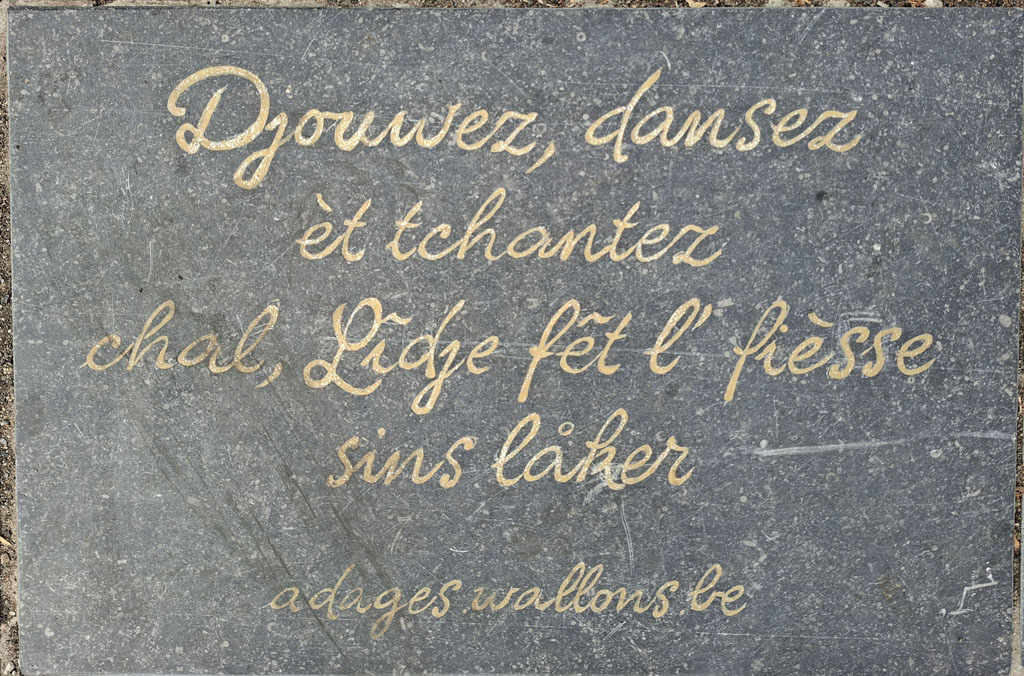 Djouwez, dansez
èt tchantez
chal, Lîdje fêt l' fièsse
sins låker
adages.wallons.be